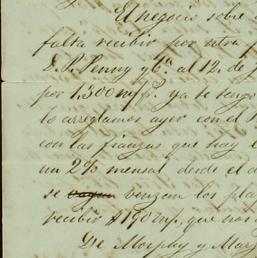 El negocio sobre
falta recibir por otra
J. P. Penny y Ca. al 12. de
por 1,300 m/p. ya te tengo
lo arreglamos ayer con el
con las fianzas que hay
un 2% mensual desde el
se venzan los pla
recibir $190 m/p, que nos
De Morphy y Mar